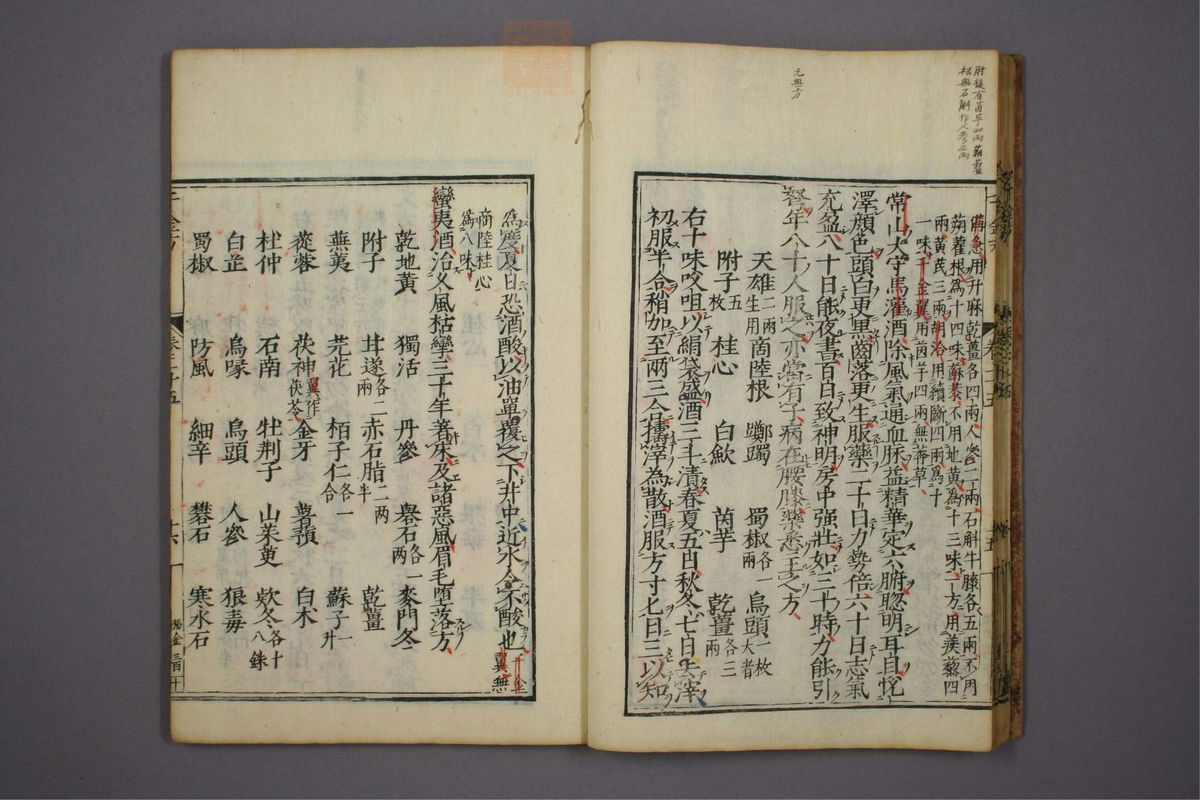 肘後有茵芋四兩蒴藋
根無石斛作人參三兩
元無方
備急用升麻乾薑各四兩人參二兩石斛牛膝各五兩不用
蒴藋根爲十四味蘇恭不用地黃爲十三味一方用蒺藜四
兩黃芪三兩胡洽用續斷四兩爲十
一味千金翼用茵芋四兩無莽草
常山太守馬灌酒除風氣通血脉益精華定六腑聰明耳目悅
澤顏色頭白更黑齒落更生服藥二十日力勢倍六十日志氣
充盈八十日能夜書百日致神明房中强壯如三十時力能引
弩年八十人服之亦當有子病在腰膝藥悉主之方
天雄二兩生用 商陸根 躑躅 蜀椒各一兩 烏頭一枚大者
附子五枚 桂心 白歛 茵芋 乾薑各三兩
右十味㕮咀以絹袋盛酒三斗漬春夏五日秋冬七日去滓
初服半合稍加至兩三合擣滓為散酒服方寸匕日三以知
爲度夏日恐酒酸以油單覆之下井中近水令不酸也千金翼無
商陸桂心
爲八味
蠻夷酒治久風枯攣三十年著床及諸惡風眉毛墮落方
乾地黃 獨活 丹參 礜石各一兩 麥門冬
附子 甘遂各二兩 赤石脂二兩半 乾薑
蕪荑 芫花 栢子仁各一合 蘇子一升
蓯蓉 茯神翼作茯苓 金牙 薯蕷 白朮
杜仲 石南 牡荆子 山茱萸 欵冬各十八銖
白芷 烏喙 烏頭 人參 狼毒
蜀椒 防風 細辛 礬石 寒水石
十五
十六